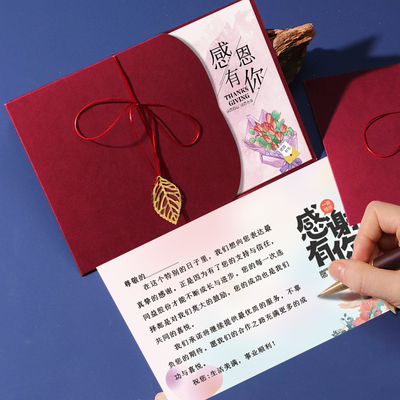 感恩
有你
THANKS
GIVING
感谢
有你
尊敬的
在这个特别的日子里，我们想向您表达最
真挚的感谢，正是因为有了您的支持与信任，
同益股份才能不断成长与进步。您的每一次选
择都是对我们莫大的鼓励，您的成功也是我们
共同的喜悦。
我们承诺将继续提供最优质的服务，不辜
负您的期待，愿我们的合作之路充满更多的成
功与喜悦。
祝您：生活美满，事业顺利！